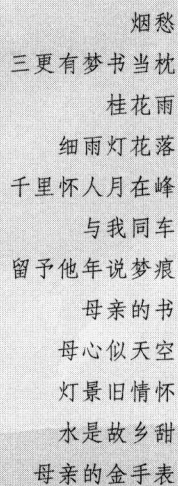 烟愁
三更有梦书当枕
桂花雨
细雨灯花落
千里怀人月在峰
与我同车
留予他年说梦痕
母亲的书
母心似天空
灯景旧情怀
水是故乡甜
母亲的金手表